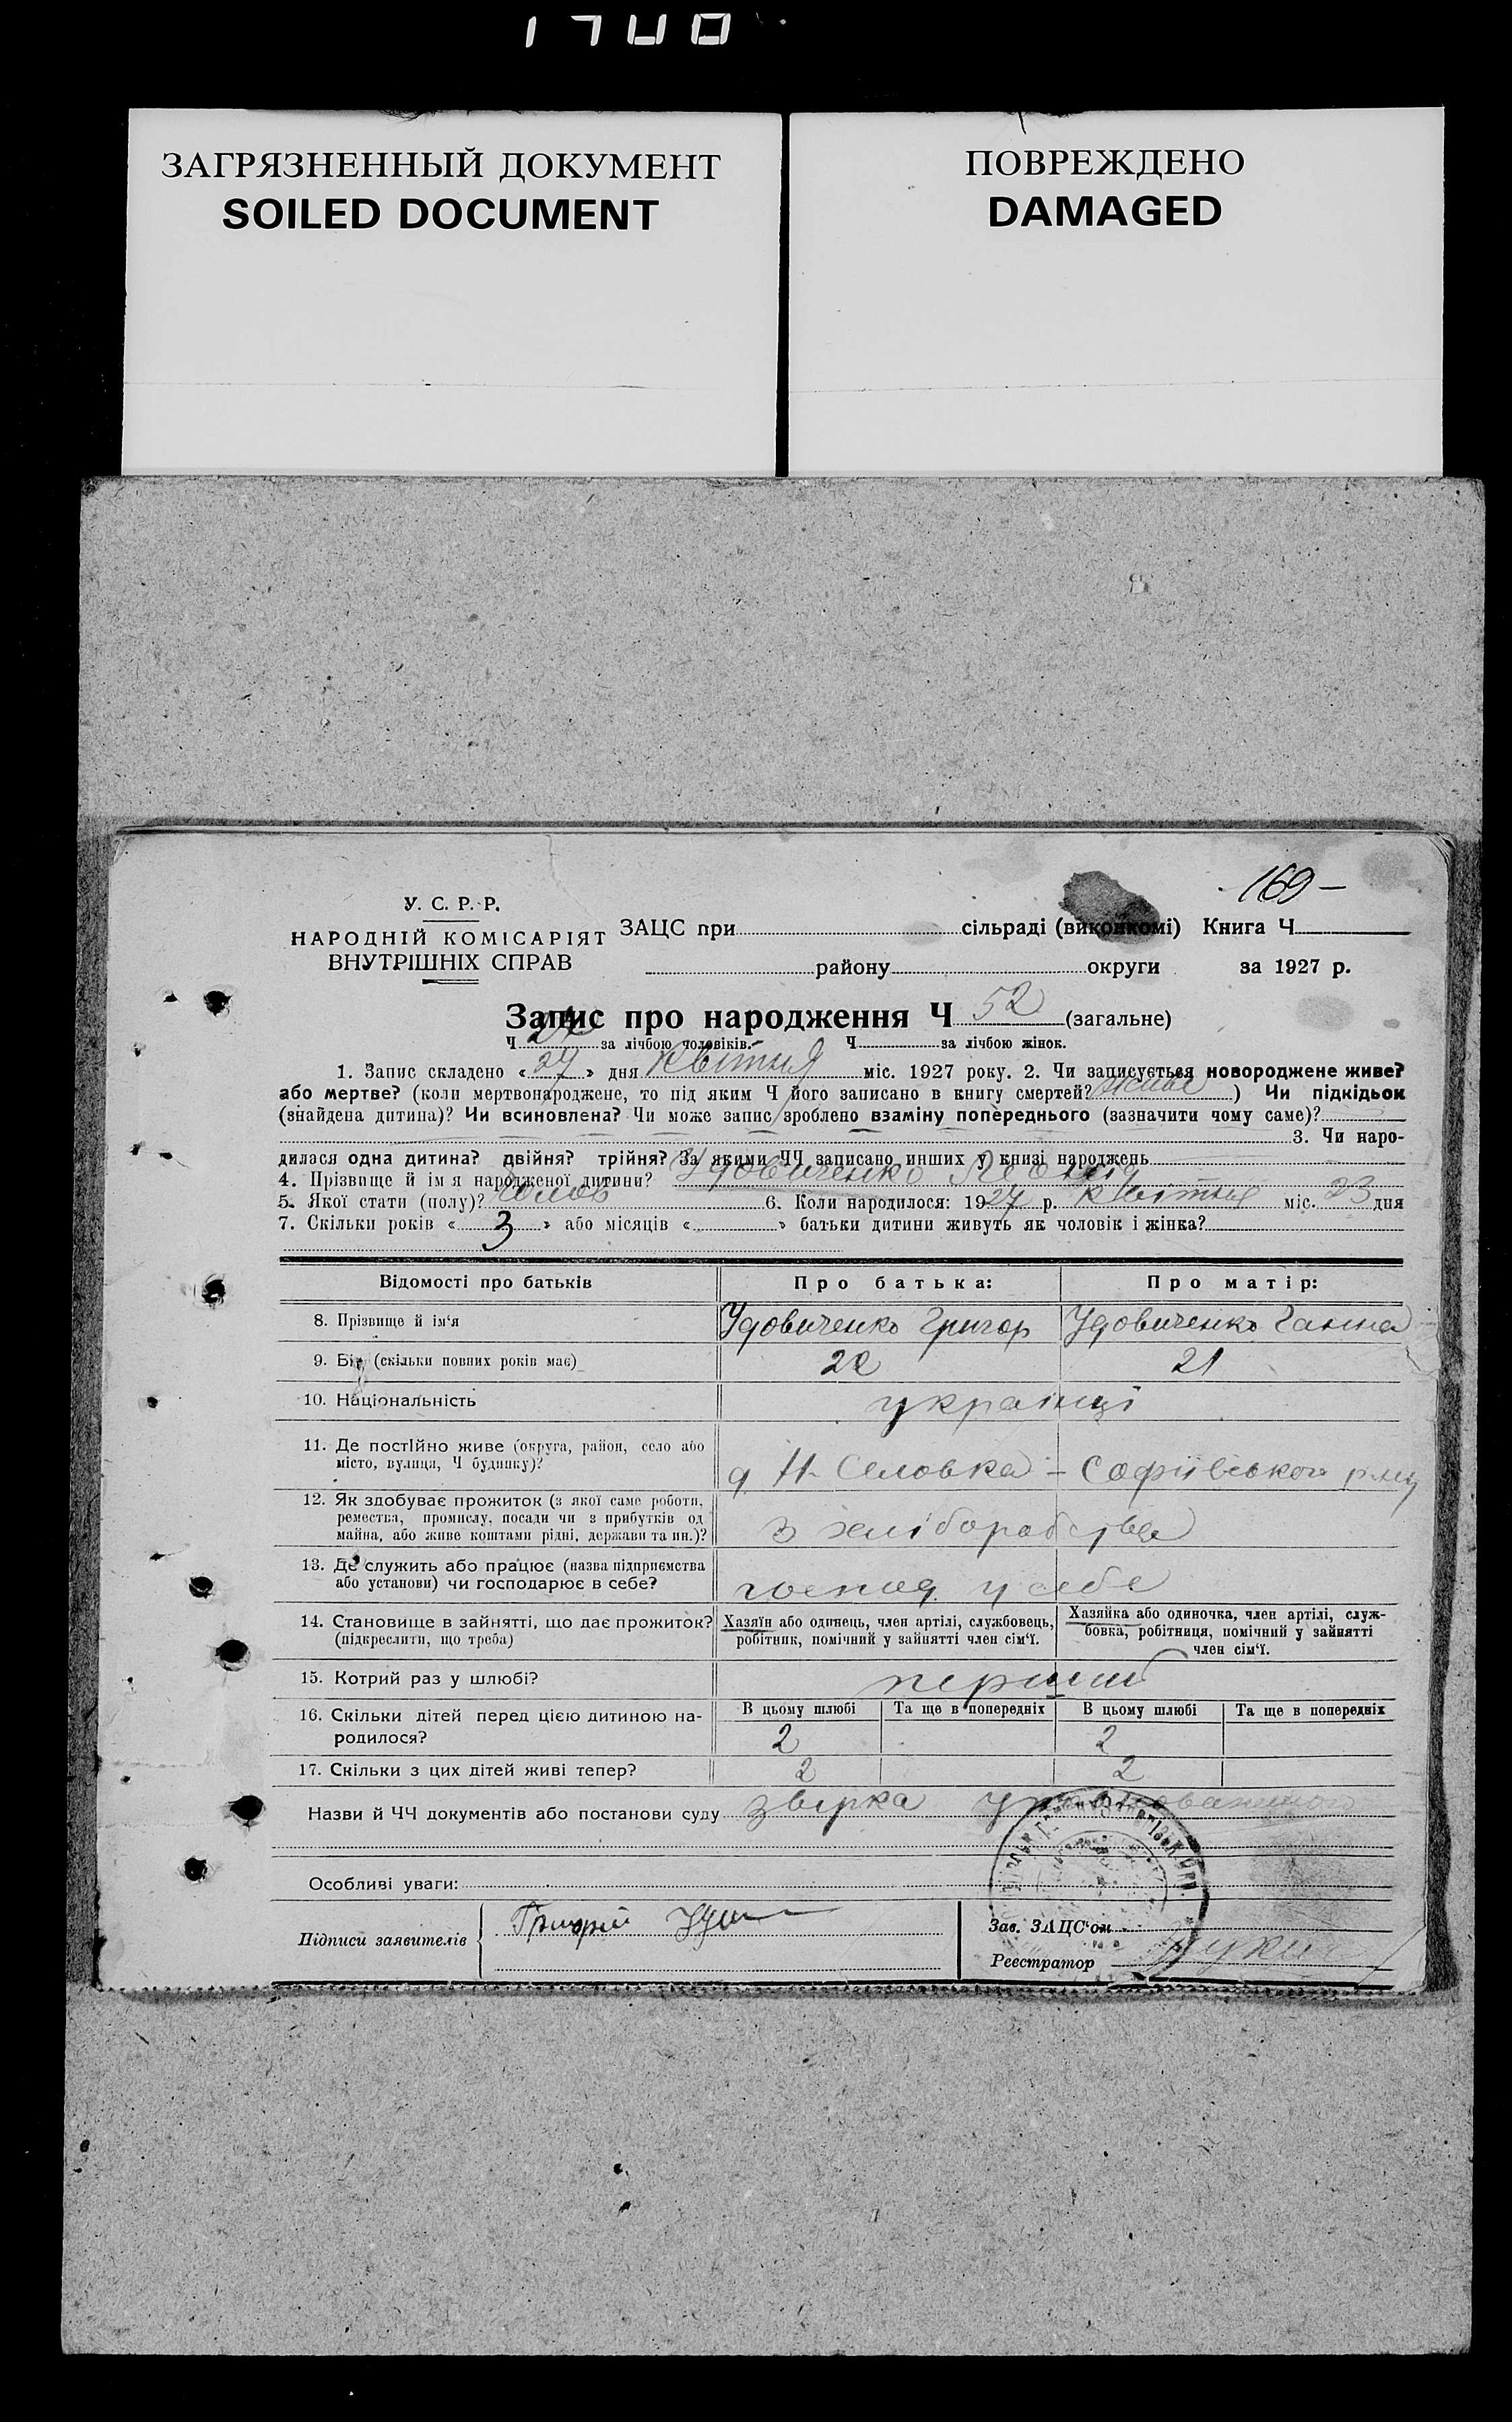 ЗАГРЯЗНЕННЫЙ ДОКУМЕНТ
SOILED DOCUMENT
ПОВРЕЖДЕНО
DAMAGED
169 –
У. С. Р. Р.
НАРОДНІЙ КОМІСАРІЯТ
ВНУТРІШНІХ СПРАВ
ЗАЦС при сільраді (виконкомі) Книга Ч
району округи за 1927 р.
Запис про народження Ч 52 (загальне)
Ч за лічбою чоловіків. Ч за лічбою жінок.
1. Запис складено « 27 » дня Квітня міс. 1927 року. 2. Чи записується новороджене живе?
або мертве? (коли мертвонароджене, то під яким Ч його записано в книгу смертей? живе ) Чи підкідьок
(знайдена дитина)? Чи всиновлена? Чи може запис зроблено взаміну попереднього (зазначити чому саме)?
3. Чи наро-
дилася одна дитина? двійня? трійня? За якими ЧЧ записано инших у книзі народжень
4. Прізвище й ім я народженої дитини? Удовиченко Леонід
5. Якої стати (полу)? Чолов 6. Коли народилося: 1927 р. Квітня міс. 23 дня
7. Скільки років « 3 » або місяців « » батьки дитини живуть як чоловік і жінка?
Відомості про батьків Про батька: Про матір:
8. Прізвище й ім'я Удовиченко Григор Удовиченко Ганна
9. Вік (скільки повних років має) 22 21
10. Національність українці
11. Де постійно живе (округа, район, село або
місто, вулиця, Ч будинку)? Софіївського
12. Як здобуває прожиток (з якої саме роботи,
ремества, промислу, посади чи з прибутків од
майна, або живе коштами рідні, держави та ин.)? з хліборобства
13. Де служить або працює (назва підприємства
або установи) чи господарює в себе? господ. у себе
14. Становище в зайнятті, що дає прожиток?
(підкреслити, що треба)
Хазяїн або одинець, член артілі, службовець,
робітник, помічний у зайнятті член сім'ї.
Хазяйка або одиночка, член артілі, служ-
бовка, робітниця, помічний у зайнятті
член сім'ї.
15. Котрий раз у шлюбі? перший
16. Скільки дітей перед цією дитиною на-
родилося?
В цьому шлюбі Та ще в попередніх В цьому шлюбі Та ще в попередніх
2 2
17. Скільки з цих дітей живі тепер? 2 2
Назви й ЧЧ документів або постанови суду звірка
Особливі уваги:
Підписи заявителів Григорій
Зав. ЗАЦС'ом
Реєстратор